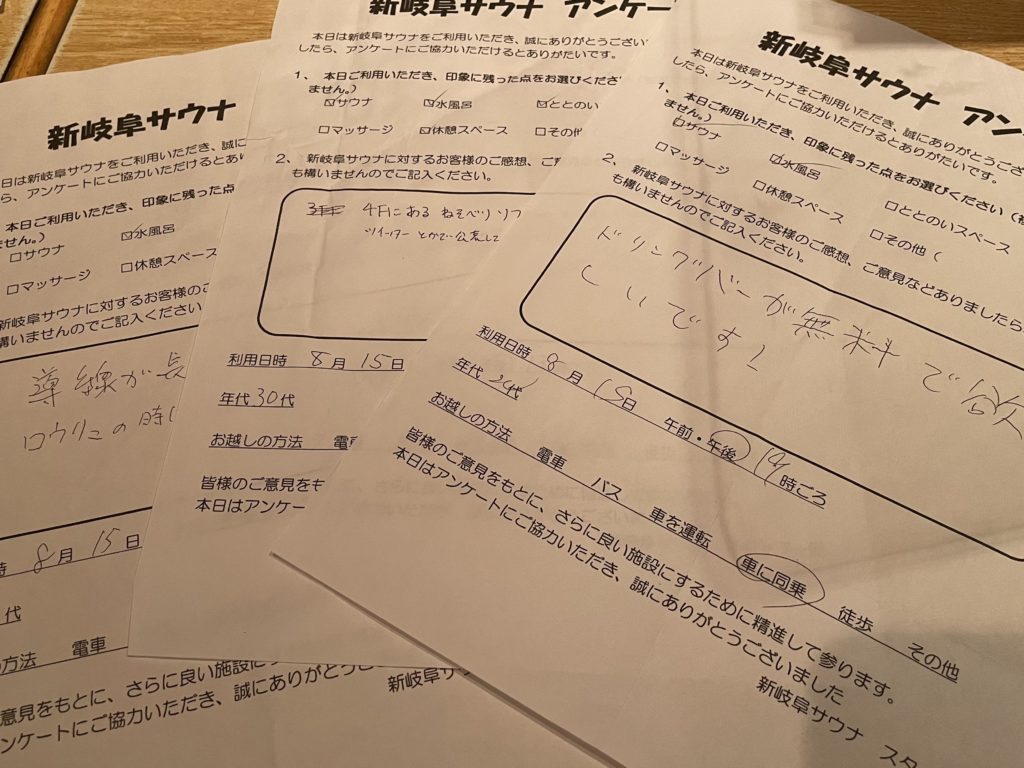 新岐阜サウナ
日は新岐阜サウナをご利用いただき、誠に
、アンケートにご協力いただけるとあり
本日ご利用いただき、印象に残った点
ません。)
□サウナ
☑水風呂
□マッサージ
□休憩スペース
新岐阜サウナに対するお客様のご
構いませんのでご記入ください
導線が長
ロウリュの時に
時 8月 15日
代
方法 電車
意見をもとに、さらに良い施設に
ンケートにご協力いただき、誠にありがとうご
新岐阜サウ
新岐阜サウナ アンケー
本日は新岐阜サウナをご利用いただき、誠にありがとうござい
したら、アンケートにご協力いただけるとありがたいです。
1、 本日ご利用いただき、印象に残った点をお選びくださ
ません。)
☑サウナ ☑水風呂 ☑ととのい
□マッサージ ☑休憩スペース □その他
2、 新岐阜サウナに対するお客様のご感想、ご
も構いませんのでご記入ください。
4Fにある ねそべり ソフ
ツイッター とかで公表して
利用日時 8月 15日
年代 30代
お越しの方法 電
皆様のご意見をも
本日はアンケー
新岐阜サウナ アン
本日は新岐阜サウナをご利用いただき、誠にありがとうござ
したら、アンケートにご協力いただけるとありがたいです。
1、 本日ご利用いただき、印象に残った点をお選びください(複
ません。)
☑サウナ ☑水風呂 □ととのいスペース
□マッサージ □休憩スペース □その他(
2、 新岐阜サウナに対するお客様のご感想、ご意見などありましたら
も構いませんのでご記入ください。
ドリンクバーが無料で欲
しいです!
利用日時 8月 15日 午前・午後 19時ごろ
年代 20代
お越しの方法 電車 バス 車を運転 車に同乗 徒歩 その他
皆様のご意見をもとに、さらに良い施設にするために精進して参ります。
本日はアンケートにご協力いただき、誠にありがとうございました
新岐阜サウナ スタ